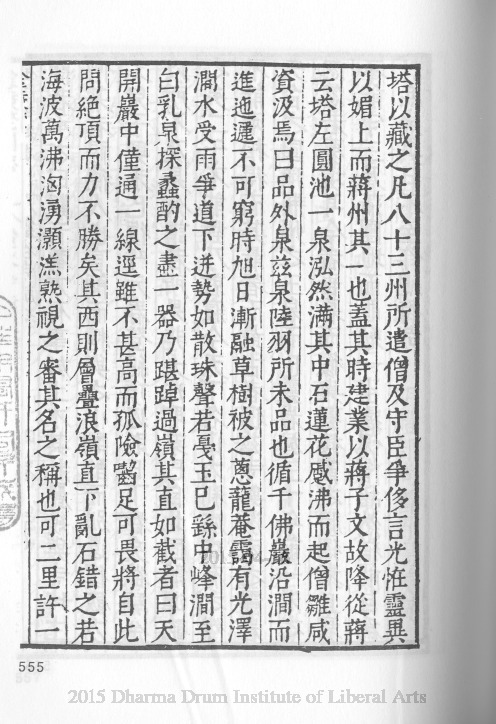 塔以藏之凡八十三州所遣僧及守臣爭侈言光恠靈異
以媚上而蔣州其一也蓋其時建業以蔣子文故降從蔣
云塔左圓池一泉泓然滿其中石蓮花蹙沸而起僧雛咸
資汲焉曰品外泉玆泉陸羽所未品也循千佛巖沿澗而
進迤邐不可窮時旭日漸融草樹被之蔥蘢菴靄有光澤
澗水受雨爭道下迸勢如散珠聲若戞玉已繇中峰澗至
白乳泉探蠡酌之盡一器乃踸踔過嶺其直如截者曰天
開巖中僅通一線逕雖不甚高而孤險嚙足可畏將自此
問絕頂而力不勝矣其西則層疊浪嶺直下亂石錯之若
海波萬沸洶湧灝溔熟視之審其名之稱也可二里許一
555
2015 Dharma Drum Institute of Liberal Arts